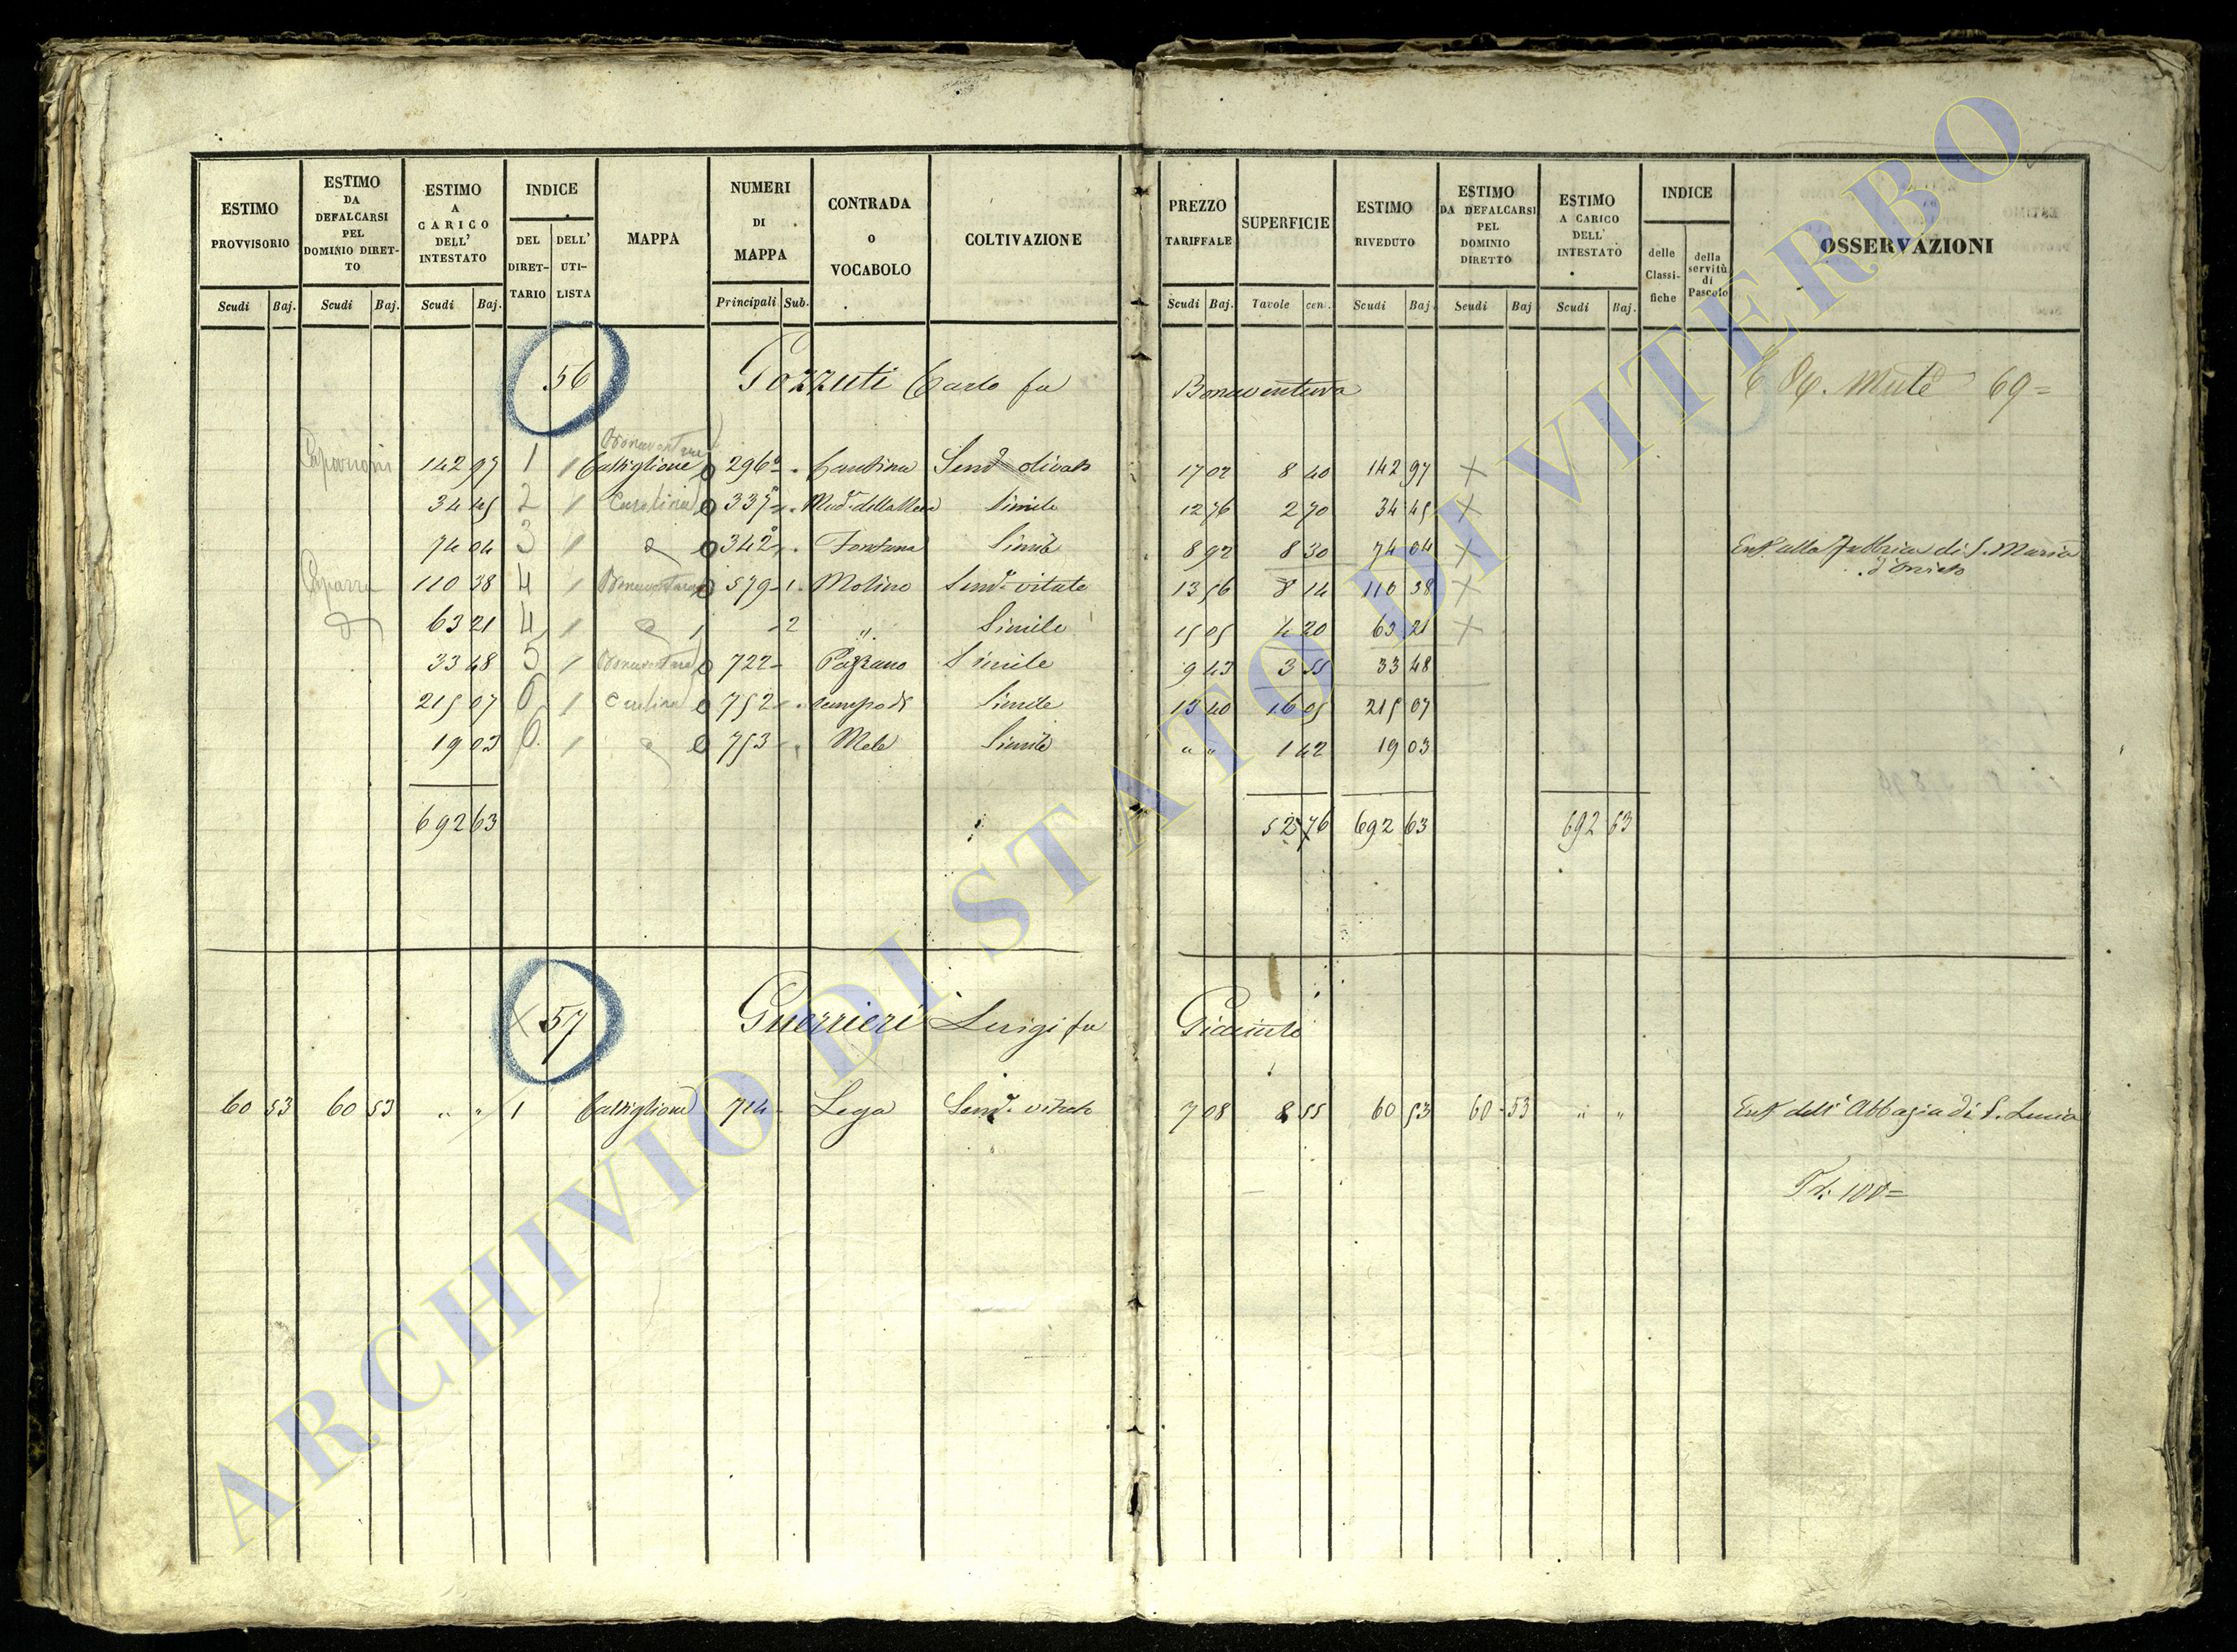 ESTIMO PROVVISORIO
ESTIMO DA DEFALCARSI PEL DOMINIO DIRETTO
ESTIMO A CARICO DELL' INTESTATO
INDICE
DEL DIRETTARIO
DELL' UTILISTA
MAPPA
NUMERI DI MAPPA
CONTRADA o VOCABOLO
COLTIVAZIONE
PREZZO TARIFFALE
SUPERFICIE
ESTIMO RIVEDUTO
ESTIMO DA DEFALCARSI PEL DOMINIO DIRETTO
ESTIMO A CARICO DELL' INTESTATO
INDICE
delle Classifiche
della servitù di Pascolo
OSSERVAZIONI
Scudi Baj. Scudi Baj. Scudi Baj. Principali Sub. Scudi Baj. Tavole cen. Scudi Baj. Scudi Baj Scudi Baj.
56 Pozzuti Carlo fu Bonaventura 69=
142 97 1 1 Castiglione 296 Cantina Sem.o olivato 17 02 8 40 142 97 +
34 45 2 1 Carolina 335 Simile 12 76 2 70 34 45 +
74 04 3 1 342 Fontana Simile 8 92 8 30 74 04 + Enf. alla Fabbrica di S. Maria
d'Orvieto
110 38 4 1 Bonaventura 579 1 Molino Sem.o vitato 13 56 8 14 110 38 +
63 21 4 1 2 " Simile 15 05 4 20 63 21 +
33 48 5 1 Bonaventura 722 Pazzano Simile 9 43 3 55 33 48
215 07 6 1 Carolina 752 Campo di Simile 13 40 16 05 215 07
19 03 6 1 753 Mele Simile " " 1 42 19 03
692 63 52 76 692 63 692 63
57 Guerrieri Luigi fu Giacinto
60 53 60 53 " " 1 Castiglione 714 Lega Sem.o vitato 7 08 8 55 60 53 60 53 " " Enf. dell'Abbazia di S. Lucia
100=
ARCHIVIO DI STATO DI VITERBO